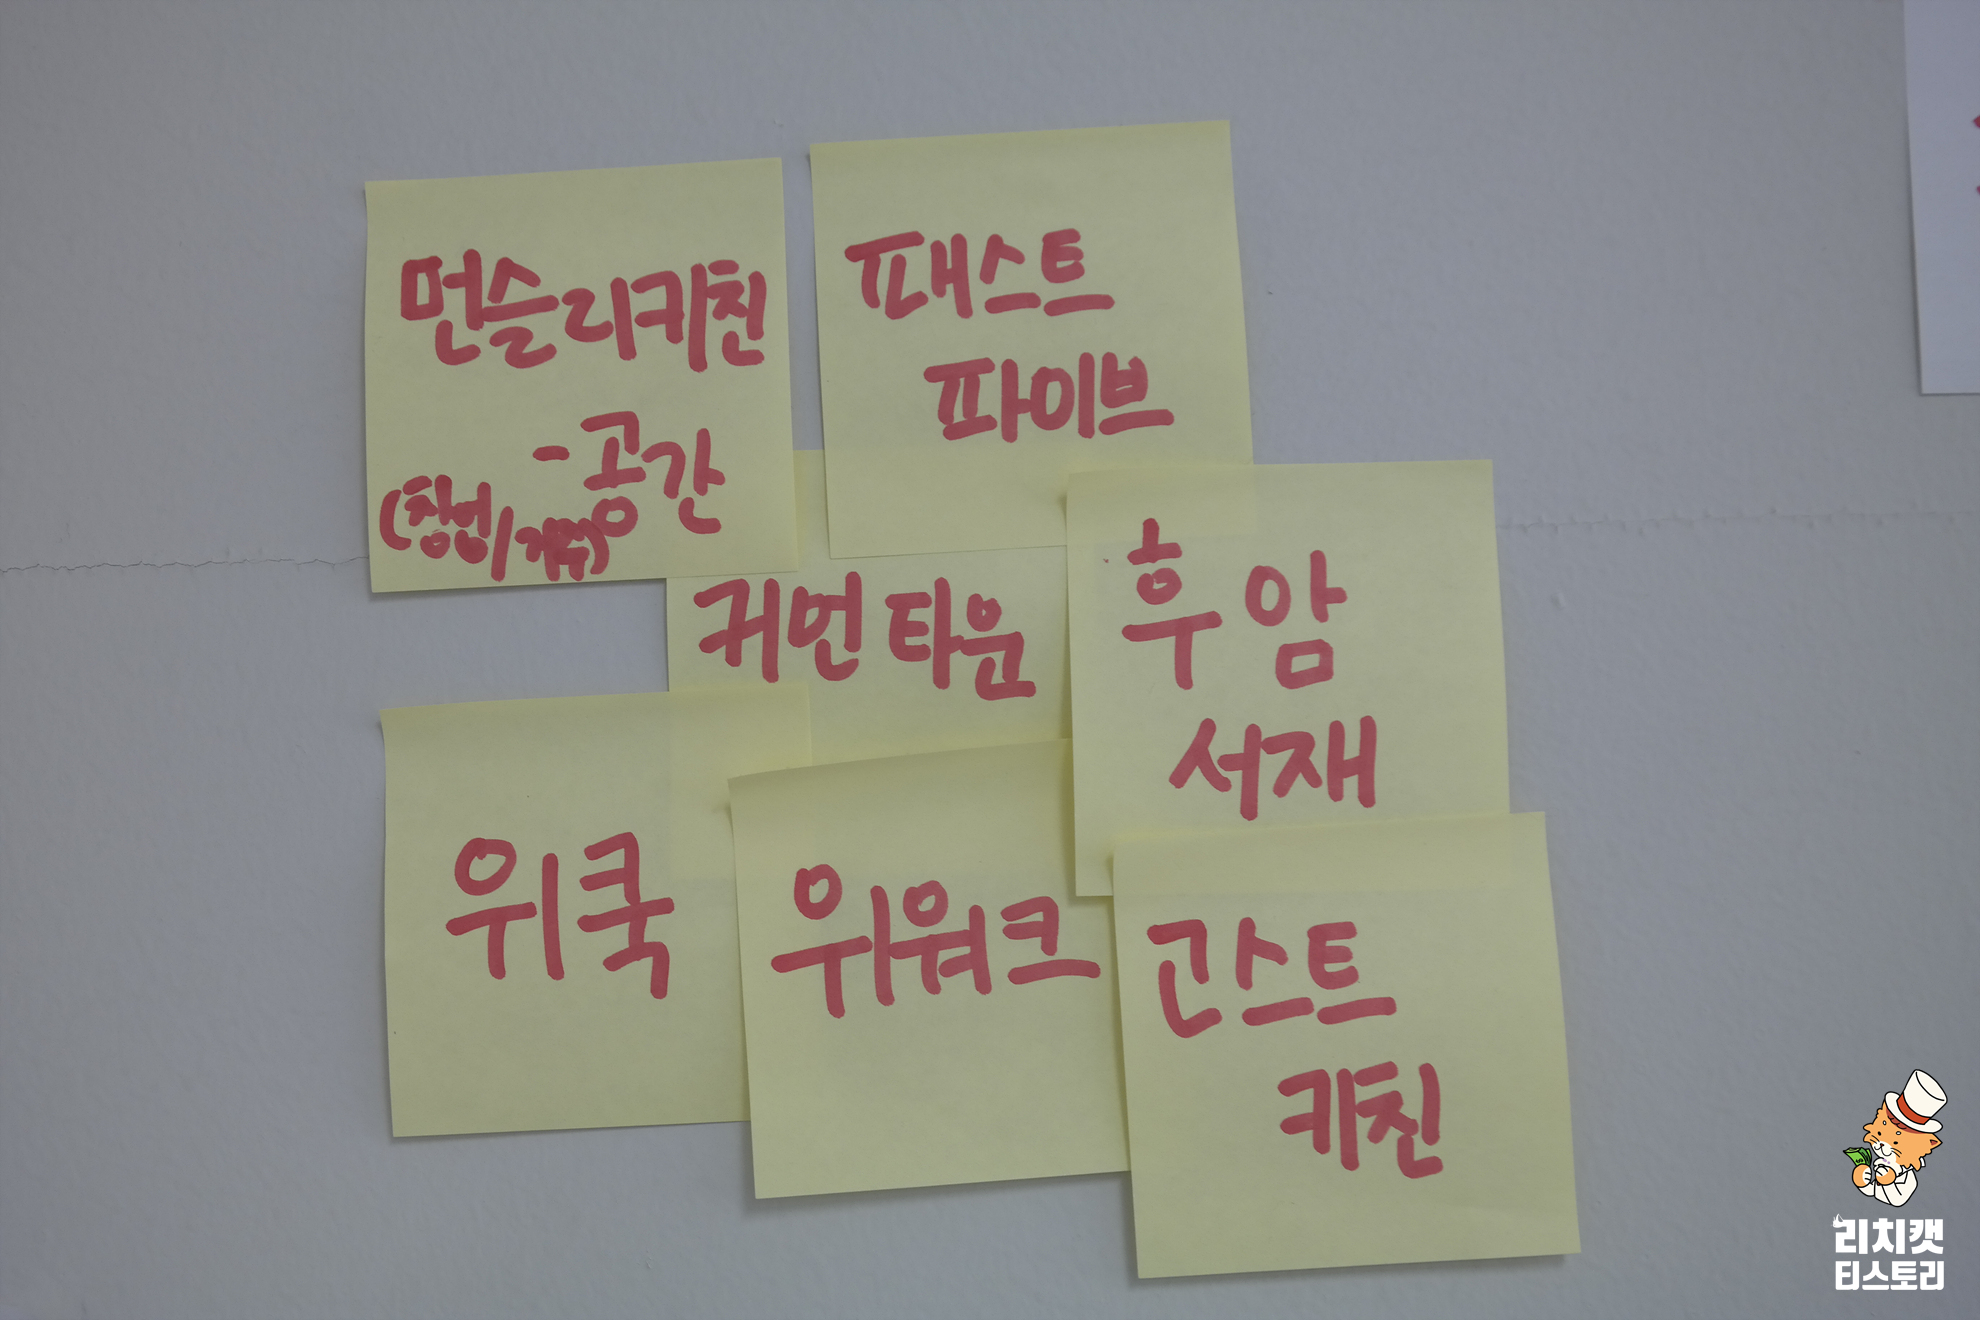 먼슬리키친
-공간
패스트
파이브
귀언타운
후암
서재
위쿡
위워크
고스트
키친
리치캣
티스토리